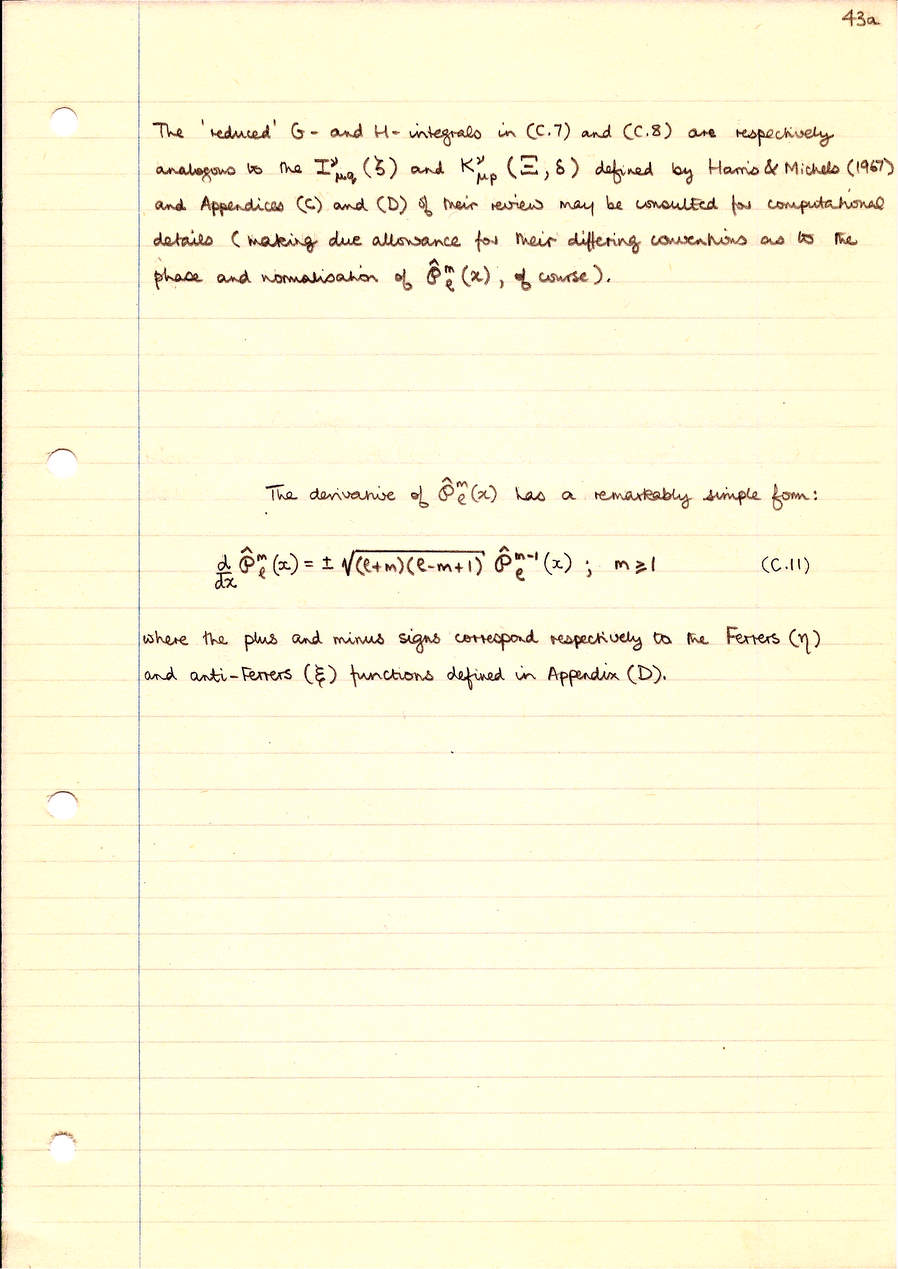 43a
The 'reduced' G- and H- integrals in (C.7) and (C.8) are respectively
analogous to the I^ν_μq (ξ) and K^ν_μp (Ξ, δ) defined by Harris & Michels (1967)
and Appendices (C) and (D) of their review may be consulted for computational
details (making due allowance for their differing conventions as to the
phase and normalisation of P̂^m_ℓ (x), of course).
The derivative of P̂^m_ℓ (x) has a remarkably simple form:
d/dx P̂^m_ℓ (x) = ± √((ℓ+m)(ℓ-m+1)) P̂^{m-1}_ℓ (x) ; m ≥ 1 (C.11)
where the plus and minus signs correspond respectively to the Ferrers (η)
and anti-Ferrers (ξ) functions defined in Appendix (D).